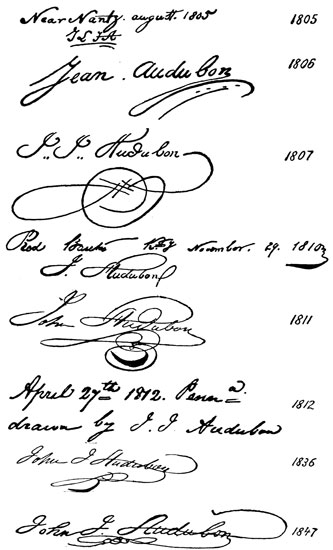 Near Nantz. august. 1805 1805
J L J A
Jean. Audubon 1806
J.. J.. Audubon 1807
Red Banks Kty November. 29. 1810
J. Audubon
John Audubon 1811
April 27th 1812. Penna
drawn by J. J. Audubon 1812
John J Audubon 1836
John J. Audubon 1847